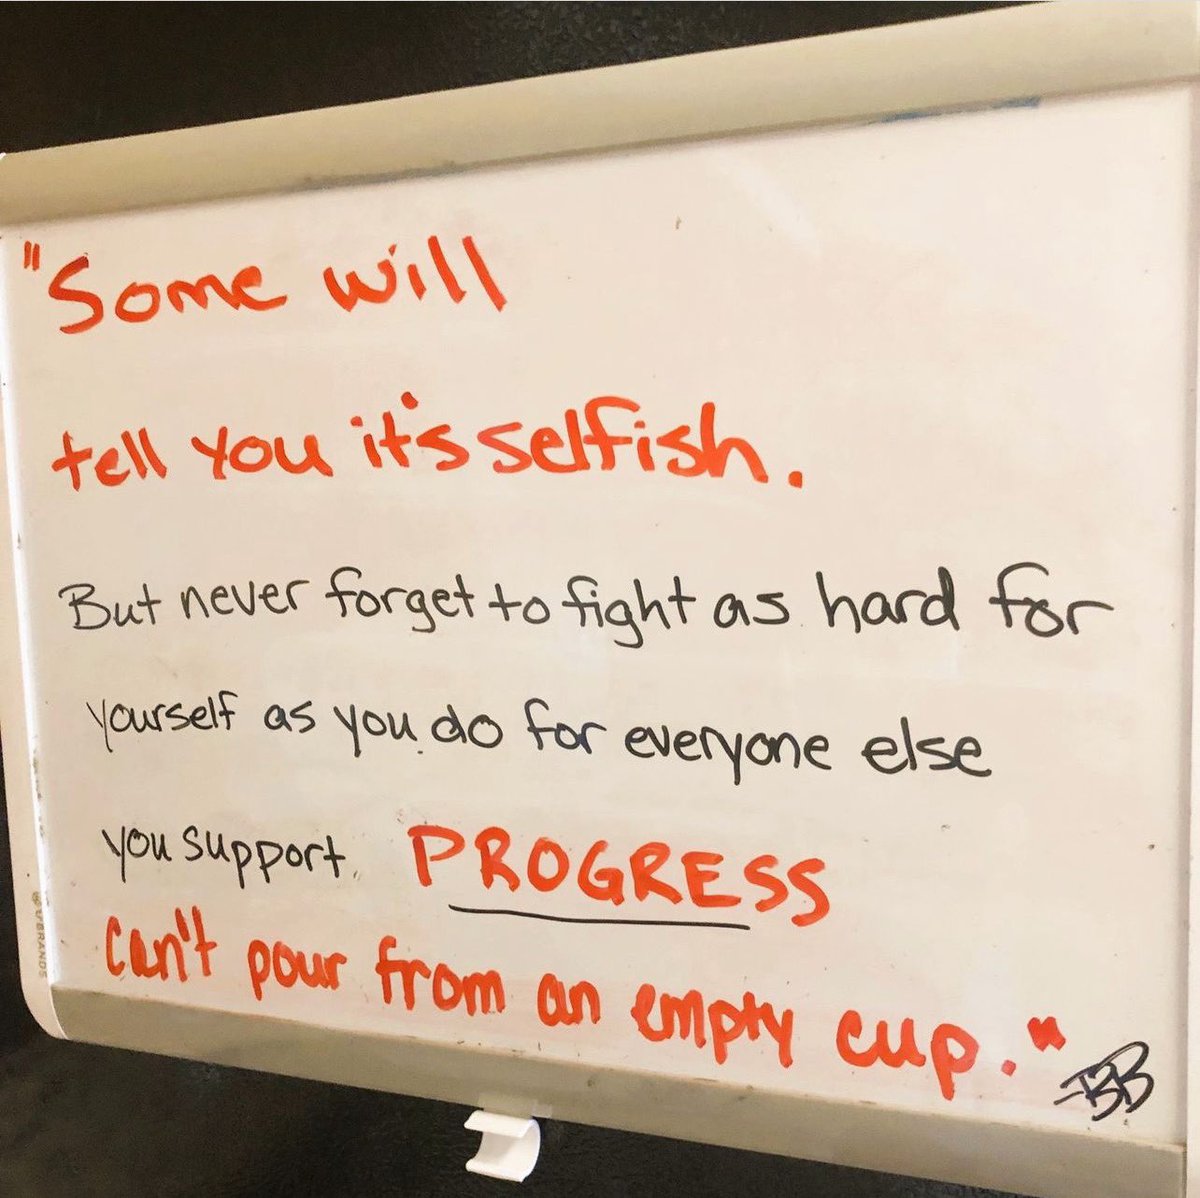 "Some will
tell you it's selfish.
But never forget to fight as hard for
yourself as you do for everyone else
you support. PROGRESS
can't pour from an empty cup."
BB
UBRANDS